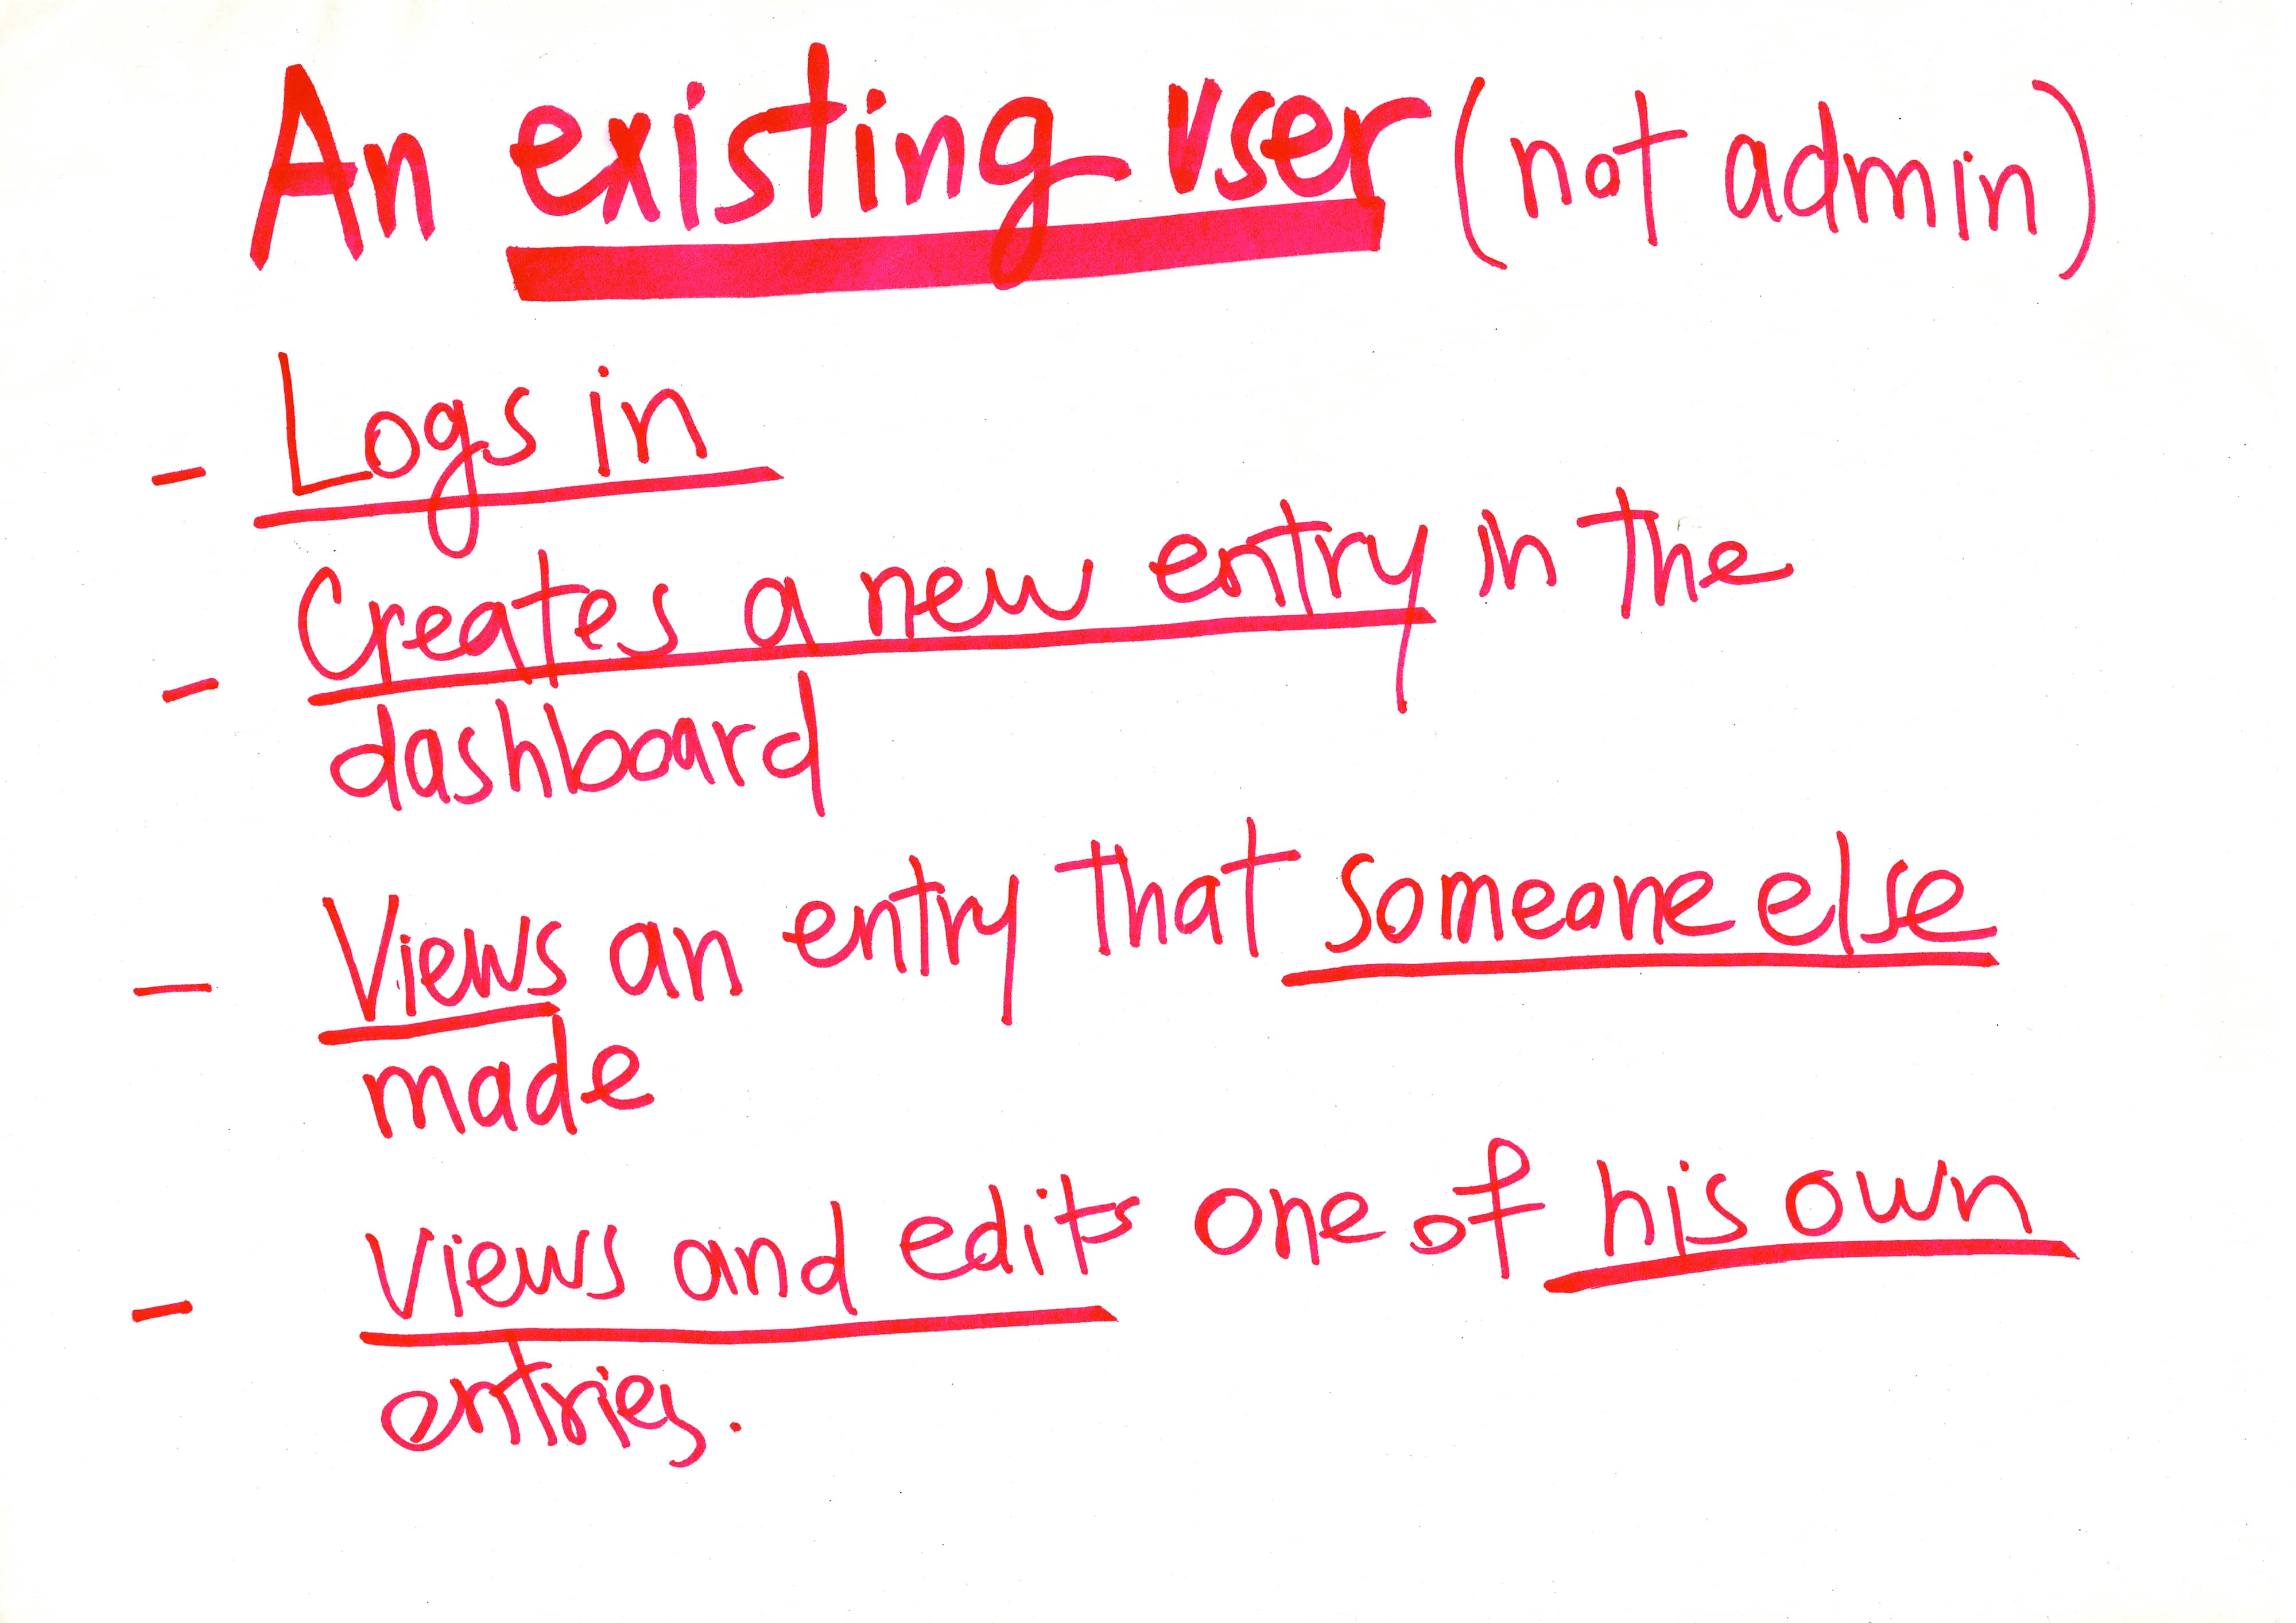 An existing user (not admin)
- Logs in
- Creates a new entry in the
dashboard
- Views an entry that someone else
made
- Views and edits one of his own
entries.